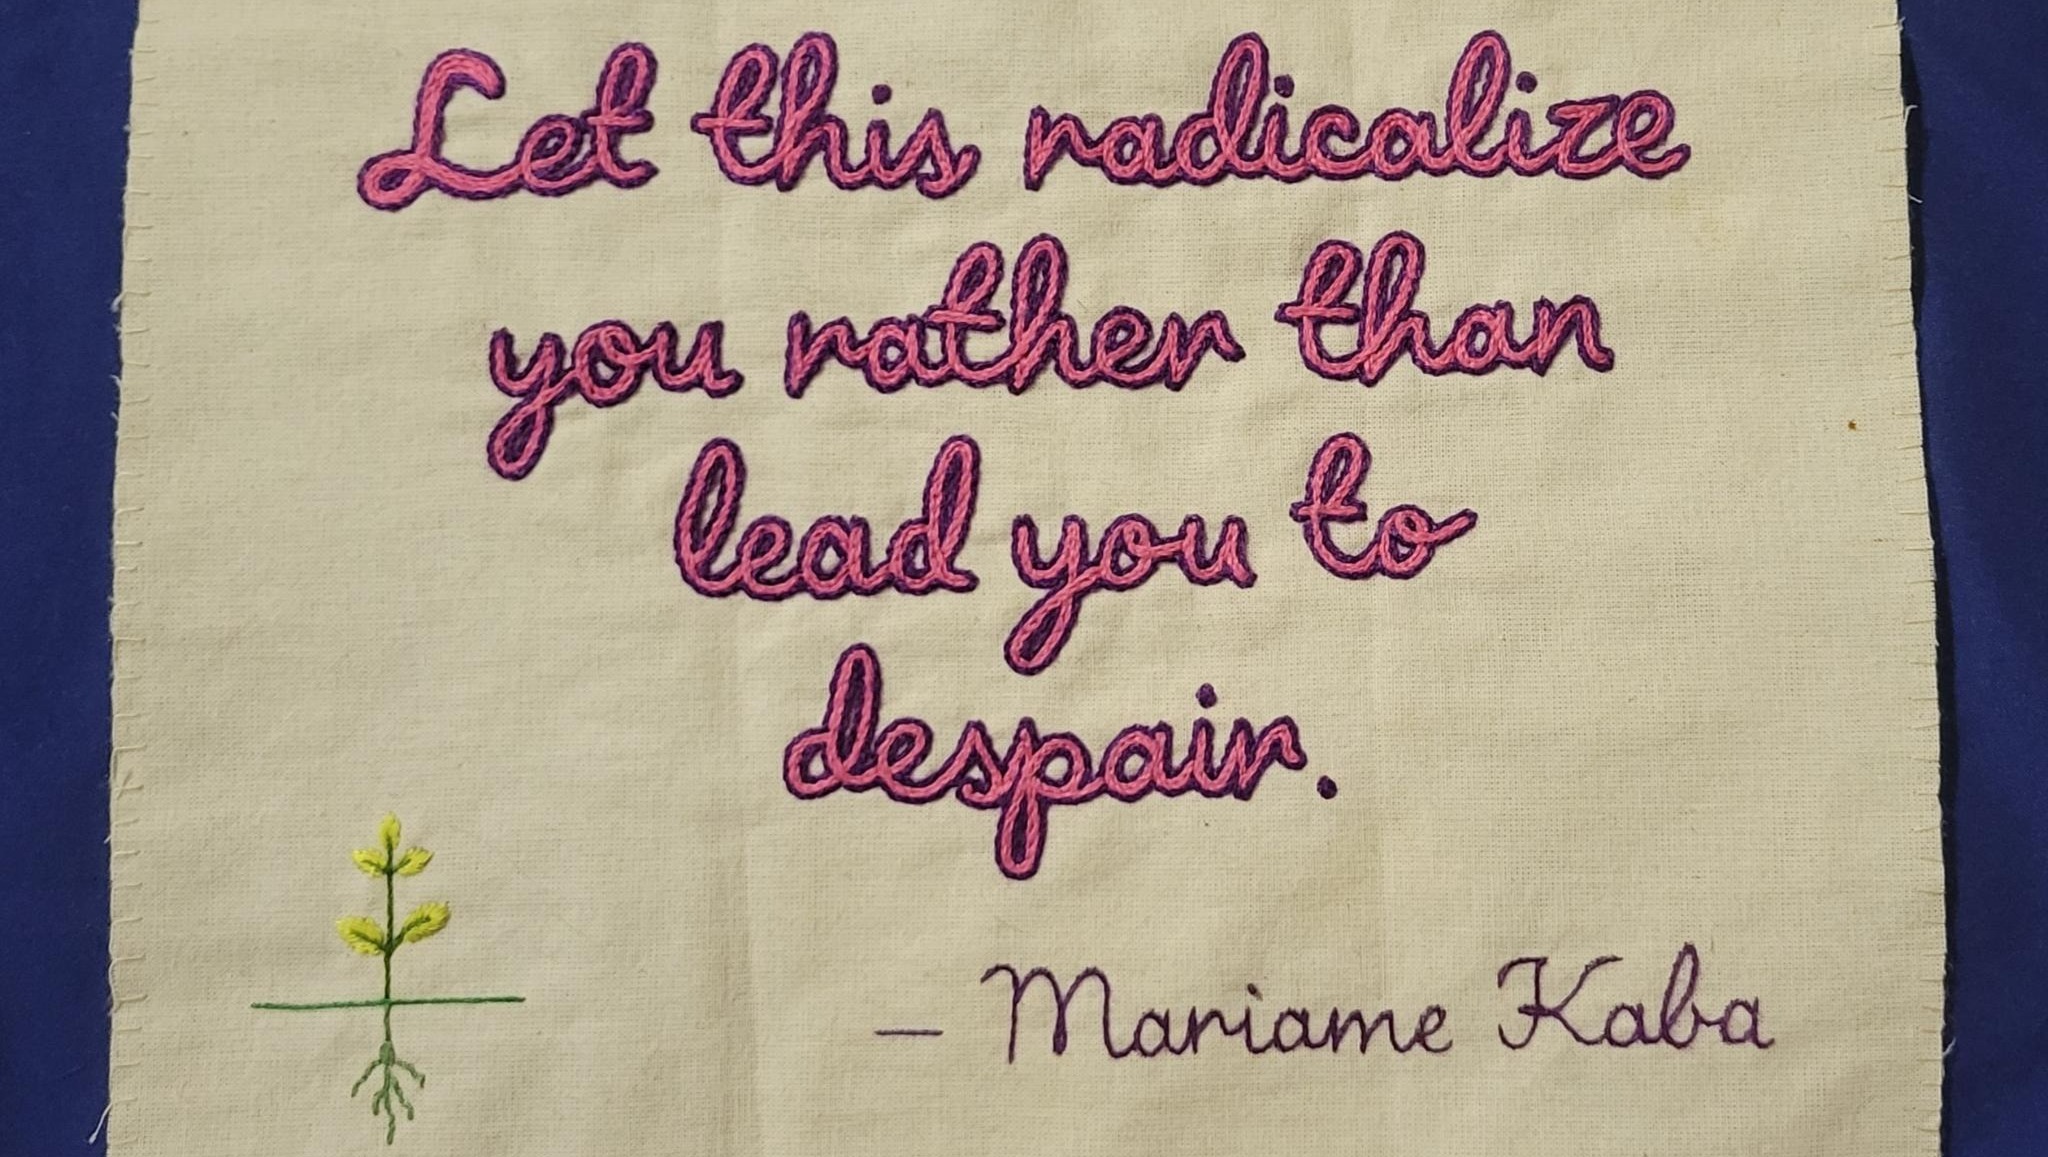 Let this radicalize
you rather than
lead you to
despair.
– Mariame Kaba